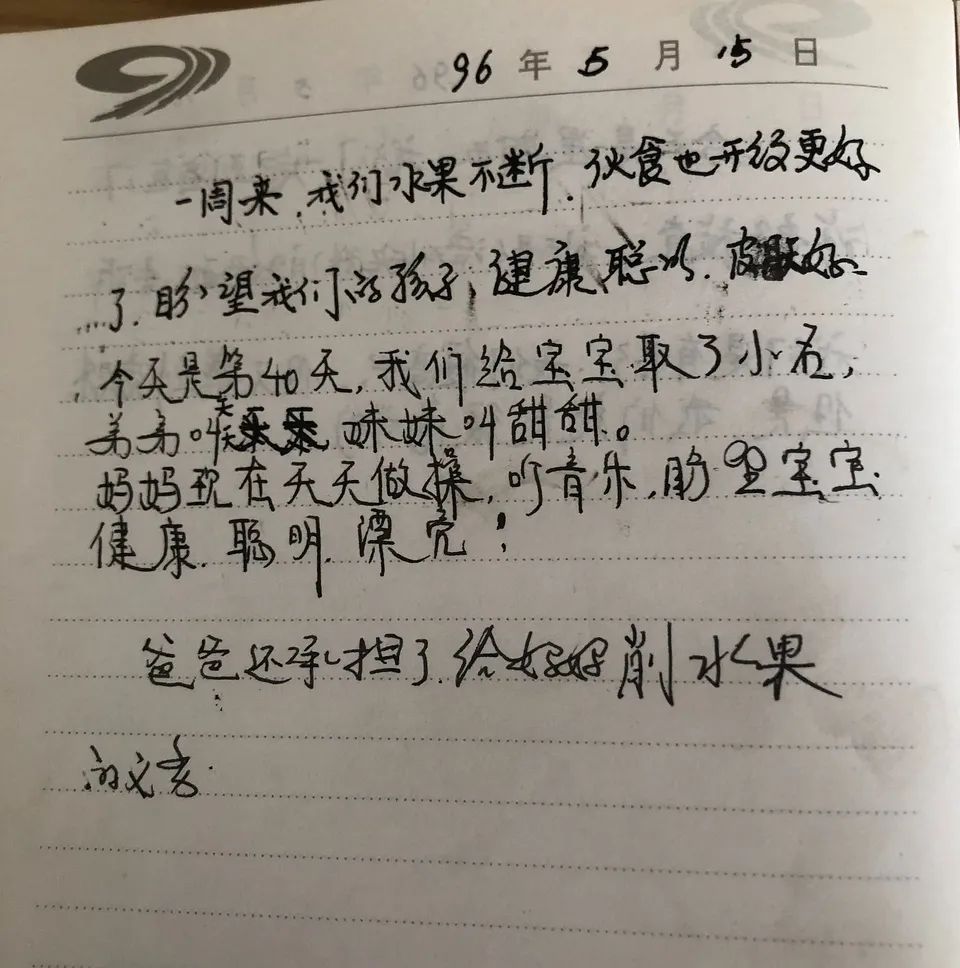 96年5月15日
一周来,我们水果不断.伙食也开级更好
了.盼望我们的孩子,健康、聪明.皮肤好.
今天是第40天,我们给宝宝取了小名,
弟弟叫天天 妹妹叫甜甜。
妈妈现在天天做操,听音乐,盼望宝宝
健康.聪明.漂亮!
爸爸还承担了给妈妈削水果
的义务.